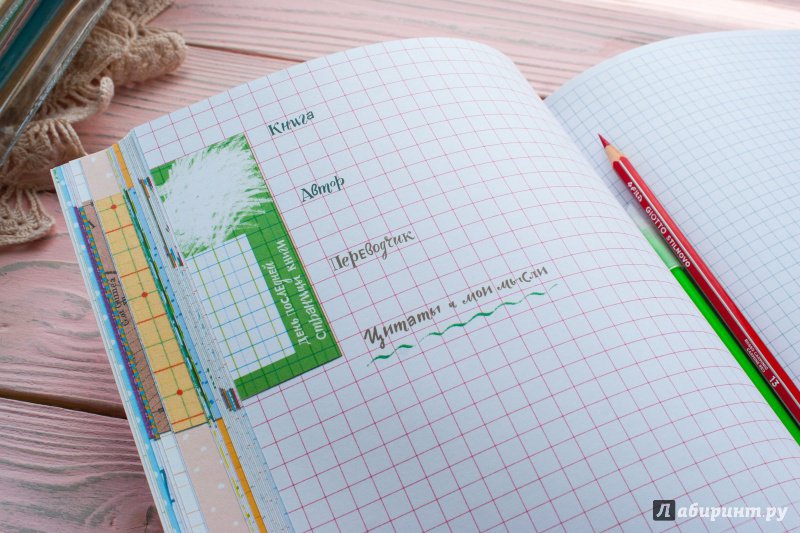 Книга
Автор
Переводчик
Цитаты и мои мысли
День последней
страницы книги
GIOTTO STILNOVO
13
Лабиринт.ру